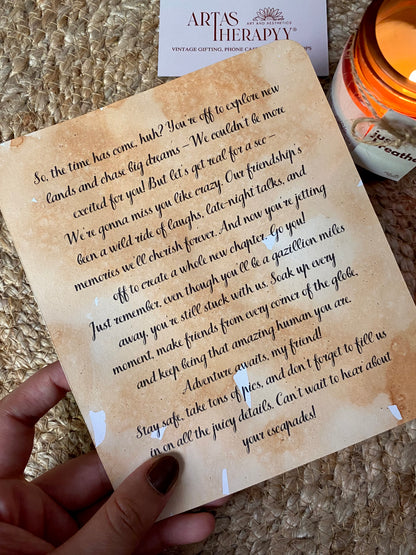 ARTAS
THERAPYY®
ART AND AESTHETICS
VINTAGE GIFTING, PHONE
So, the time has come, huh? You're off to explore new
lands and chase big dreams – We couldn't be more
excited for you! But let's get real for a sec–
We're gonna miss you like crazy. Our friendship's
been a wild ride of laughs, late-night talks, and
memories we'll cherish forever. And now you're jetting
off to create a whole new chapter. Go you!
Just remember, even though you'll be a gazillion miles
away, you're still stuck with us. Soak up every
moment, make friends from every corner of the globe,
and keep being that amazing human you are.
Adventure awaits, my friend!
Stay safe, take tons of pics, and don't forget to fill us
in on all the juicy details. Can't wait to hear about
your escapades!